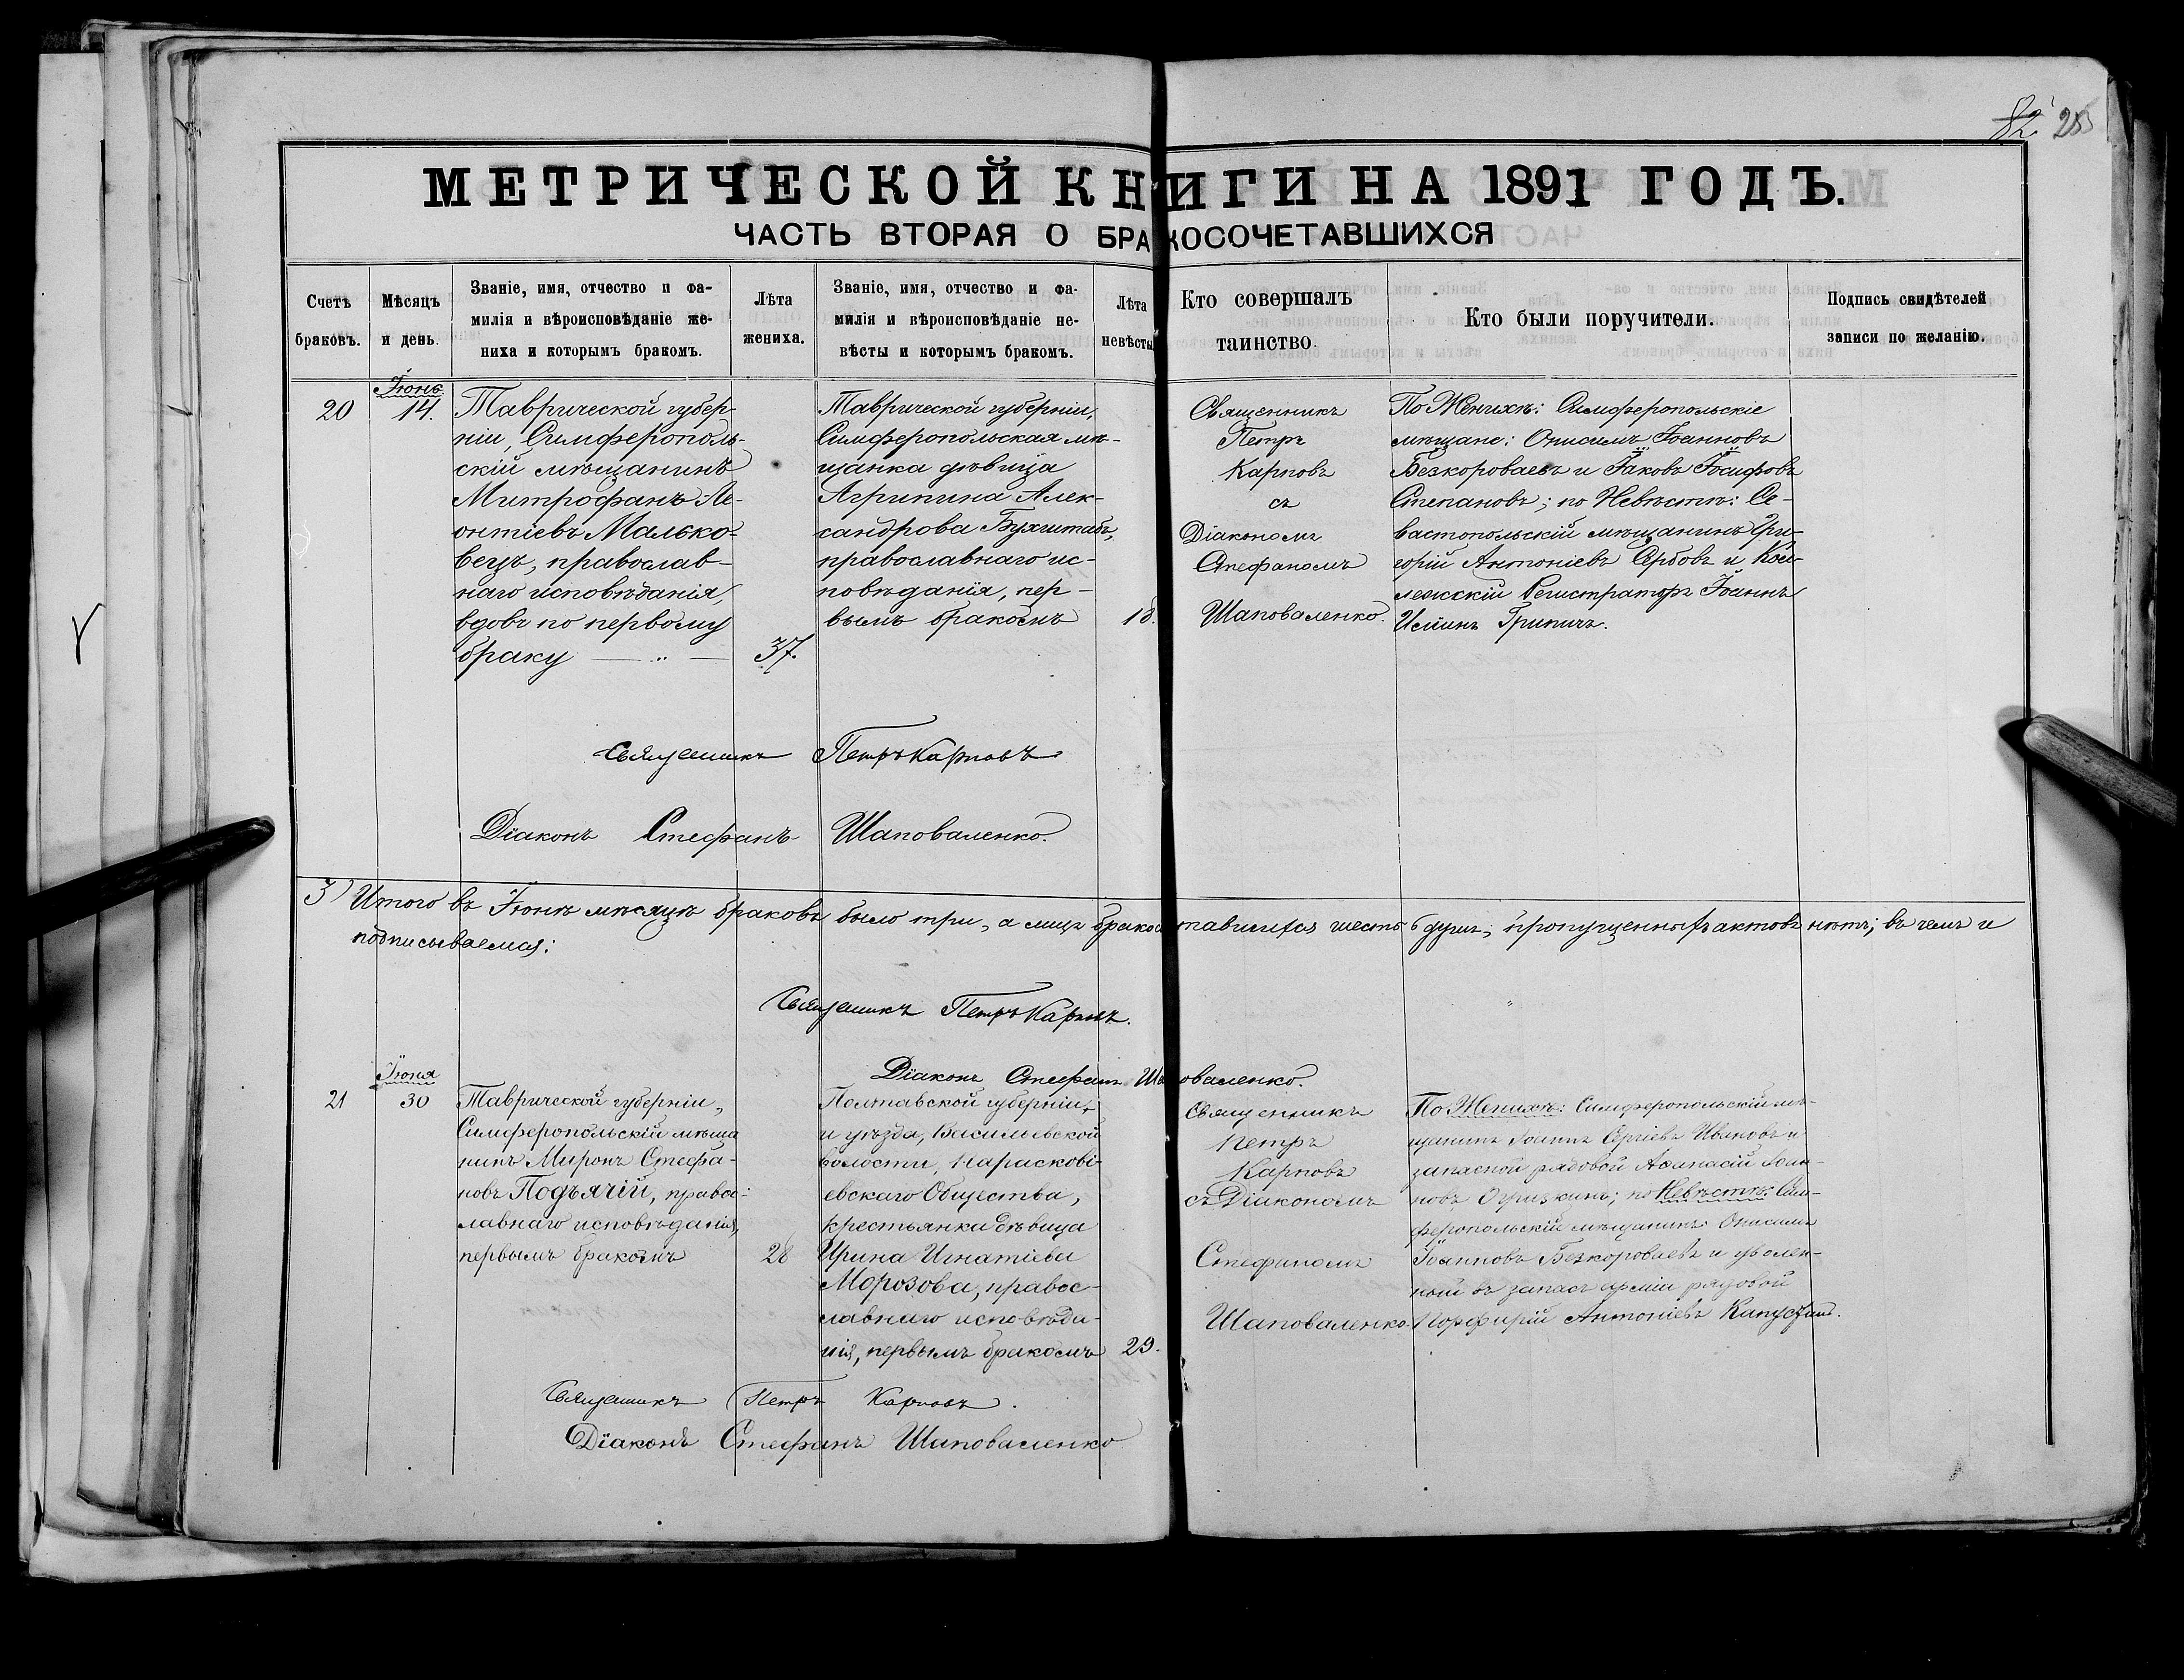 82 285
МЕТРИЧЕСКОЙ КНИГИ НА 1891 ГОДЪ.
ЧАСТЬ ВТОРАЯ О БРАКОСОЧЕТАВШИХСЯ
Счетъ
браковъ.
Мѣсяцъ
и день.
Званіе, имя, отчество и фа-
милія и вѣроисповѣданіе же-
ниха и которымъ бракомъ.
Лѣта
жениха.
Званіе, имя, отчество и фа-
милія и вѣроисповѣданіе не-
вѣсты и которымъ бракомъ.
Лѣта
невѣсты
Кто совершалъ
таинство.
Кто были поручители.
Подпись свидѣтелей
записи по желанію.
20
Іюнь
14.
Таврической губер-
ніи, Симферополь-
скій мѣщанинъ
Митрофанъ Ле-
онтіевъ Малько-
вецъ, православ-
наго исповѣданія,
вдовъ по первому
браку
37.
Таврической губерніи,
Симферопольская мѣ-
щанка дѣвица
Агрипина Алек-
сандрова Бухштабъ,
православнаго ис-
повѣданія, пер-
вымъ бракомъ
18.
Священникъ
Петръ
Карповъ
съ
Діакономъ
Стефаномъ
Шаповаленко.
По Женихѣ: Симферопольскіе
мѣщане: Онисимъ Іоанновъ
Безкороваевъ и Іаковъ Іосифовъ
Степановъ; по Невѣстѣ: Се-
вастопольскій мѣщанинъ Гри-
горій Антоніевъ Сербовъ и Кол-
лежскій Регистраторъ Іоаннъ
Грипичъ.
Священникъ Петръ Карповъ
Діаконъ Стефанъ Шаповаленко.
3) Итого въ Іюнѣ мѣсяцѣ браковъ было три, а лицъ шесть 6 душъ; пропущенныхъ актовъ нѣтъ; въ чемъ и
подписываемся:
Священникъ Петръ Карповъ.
Діаконъ Стефанъ Шаповаленко.
21
Іюня
30
Таврической губерніи,
Симферопольскій мѣща
нинъ Миронъ Стефа-
новъ Подъячій, право-
славнаго исповѣданія,
первымъ бракомъ
28
Полтавской губерніи,
и уѣзда, Васильевской
волости, Параскові-
евскаго Общества,
крестьянка дѣвица
Ирина Игнатіева
Морозова, правос-
лавнаго исповѣда-
нія, первымъ бракомъ
29.
Священникъ
Петръ
Карповъ
съ Діакономъ
Стефаномъ
Шаповаленко.
По Женихѣ: Симферопольскій мѣ-
щанинъ Іоаннъ Сергіевъ Ивановъ и
запасной рядовой Аѳанасій Іоан-
новъ; по Невѣстѣ: Сим-
феропольскій мѣщанинъ: Онисимъ
Іоанновъ Безкороваевъ и уволен-
ный въ запасъ арміи рядовой
Порфирій Антоніевъ
Священникъ Петръ Карповъ.
Діаконъ Стефанъ Шаповаленко